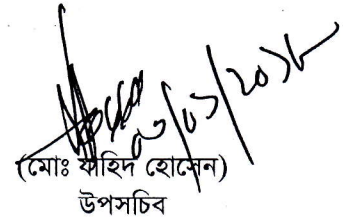 ০৩/০১/২০১৮
(মোঃ যাহিদ হোসেন)
উপসচিব